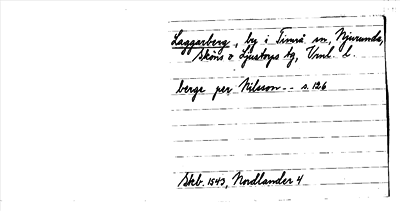 Laggarberg, by i Timrå sn, Njurunda,
Sköns o Ljustorps tg, Vml. l.
berge per Nilsson -- s. 126
Skb. 1543, Nordlander 4